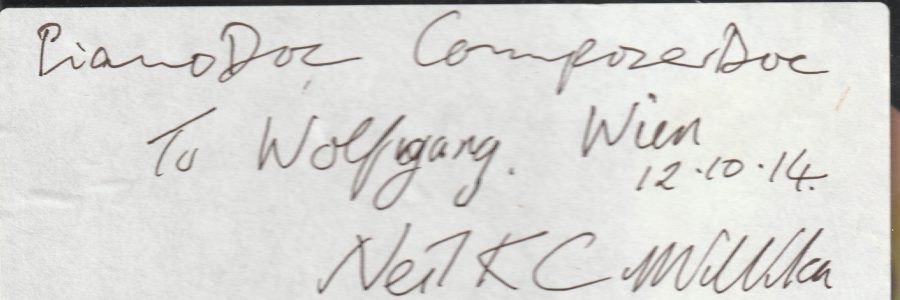 PianoDoc ComposerDoc
To Wolfgang. Wien
12.10.14.
Neil K C